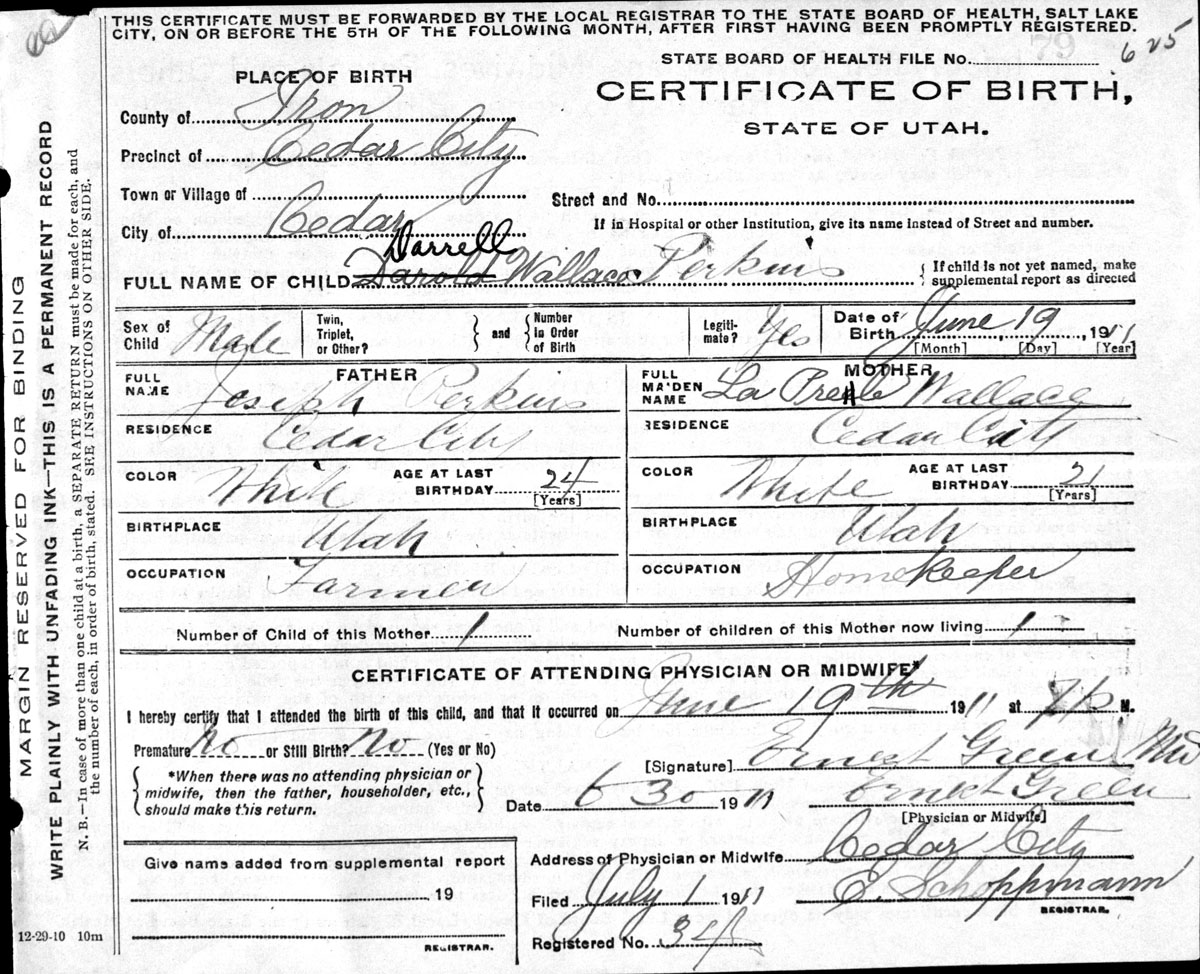 THIS CERTIFICATE MUST BE FORWARDED BY THE LOCAL REGISTRAR TO THE STATE BOARD OF HEALTH, SALT LAKE
CITY, ON OR BEFORE THE 5TH OF THE FOLLOWING MONTH, AFTER FIRST HAVING BEEN PROMPTLY REGISTERED.
79
STATE BOARD OF HEALTH FILE No. 625
PLACE OF BIRTH
CERTIFICATE OF BIRTH,
STATE OF UTAH.
County of Iron
Precinct of Cedar City
Town or Village of
Street and No.
City of Cedar
If in Hospital or other Institution, give its name instead of Street and number.
Darrell
FULL NAME OF CHILD Darold Wallace Perkins { If child is not yet named, make
supplemental report as directed
Sex of Child Male Twin, Triplet, or Other? } and { Number in Order of Birth Legiti-mate? Yes Date of Birth June 19, 1911
[Month] [Day] [Year]
FATHER MOTHER
FULL NAME Joseph Perkins FULL MAIDEN NAME La Prele Wallace
RESIDENCE Cedar City RESIDENCE Cedar City
COLOR White AGE AT LAST BIRTHDAY 24 [Years] COLOR White AGE AT LAST BIRTHDAY 21 [Years]
BIRTHPLACE Utah BIRTHPLACE Utah
OCCUPATION Farmer OCCUPATION Homekeeper
Number of Child of this Mother 1 Number of children of this Mother now living 1
CERTIFICATE OF ATTENDING PHYSICIAN OR MIDWIFE*
I hereby certify that I attended the birth of this child, and that it occurred on June 19th 1911 at 7 P M.
Premature No or Still Birth? No (Yes or No)
[Signature] Ernest Green MD
{ *When there was no attending physician or
midwife, then the father, householder, etc.,
should make this return. }
Date 6 30 1911 Ernest Green
[Physician or Midwife]
Give name added from supplemental report
19
REGISTRAR.
Address of Physician or Midwife Cedar City
Filed July 1 1911 E. Schoppmann
REGISTRAR.
Registered No. 34
12-29-10 10m
MARGIN RESERVED FOR BINDING
WRITE PLAINLY WITH UNFADING INK—THIS IS A PERMANENT RECORD
N. B.—In case of more than one child at a birth, a SEPARATE RETURN must be made for each, and
the number of each, in order of birth, stated. SEE INSTRUCTIONS ON OTHER SIDE.